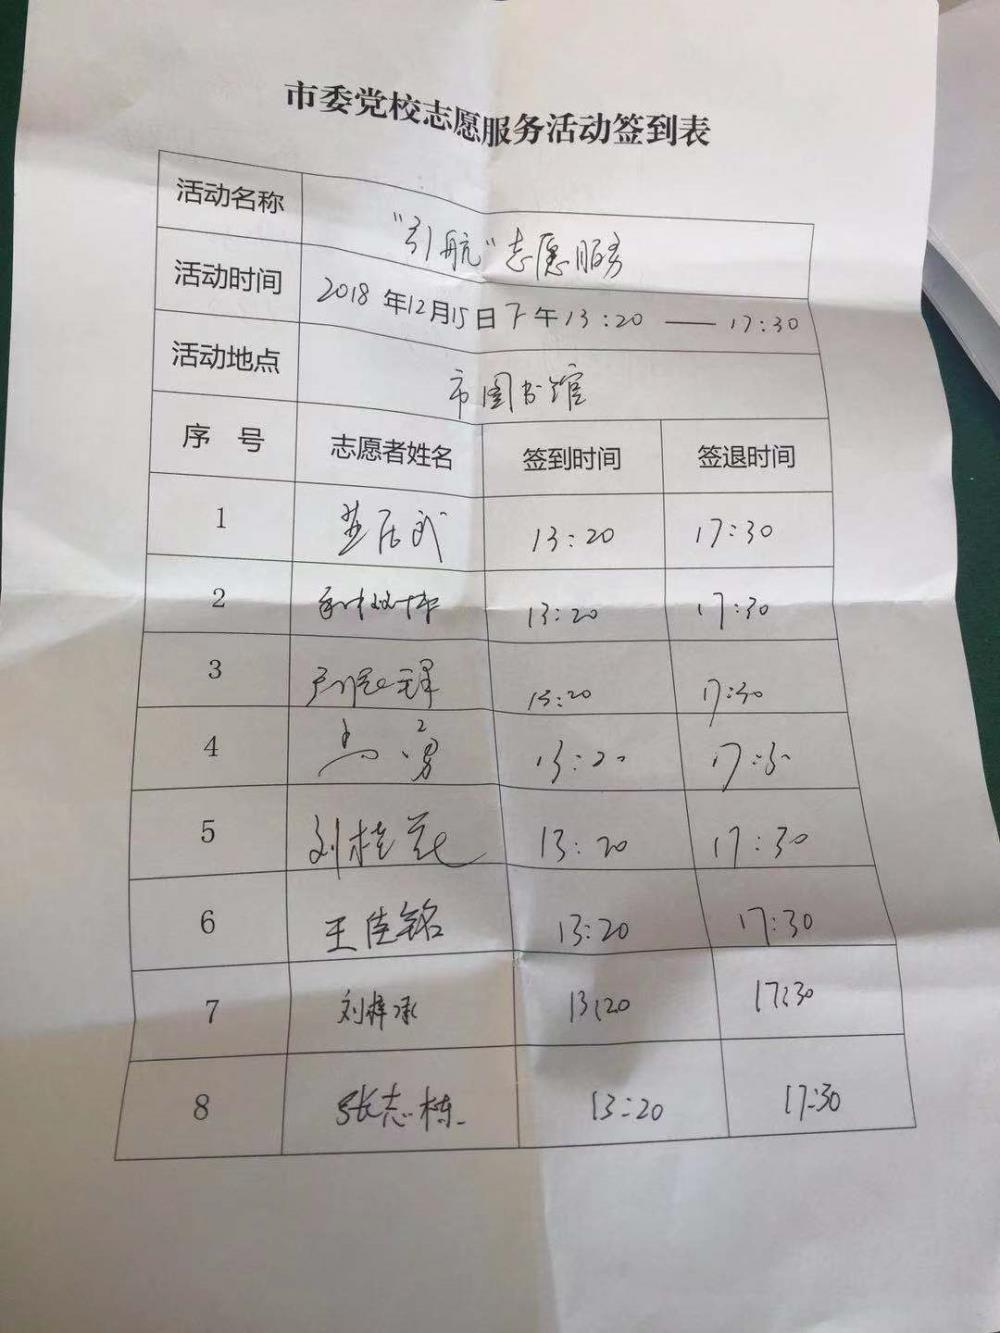 市委党校志愿服务活动签到表
活动名称 "引航"志愿服务
活动时间 2018年12月15日下午13:20——17:30
活动地点 市图书馆
序 号 志愿者姓名 签到时间 签退时间
1 13:20 17:30
2 13:20 17:30
3 13:20 17:30
4 马勇 13:20 17:30
5 刘桂花 13:20 17:30
6 王佳铭 13:20 17:30
7 刘梓承 13:20 17:30
8 张志栋 13:20 17:30